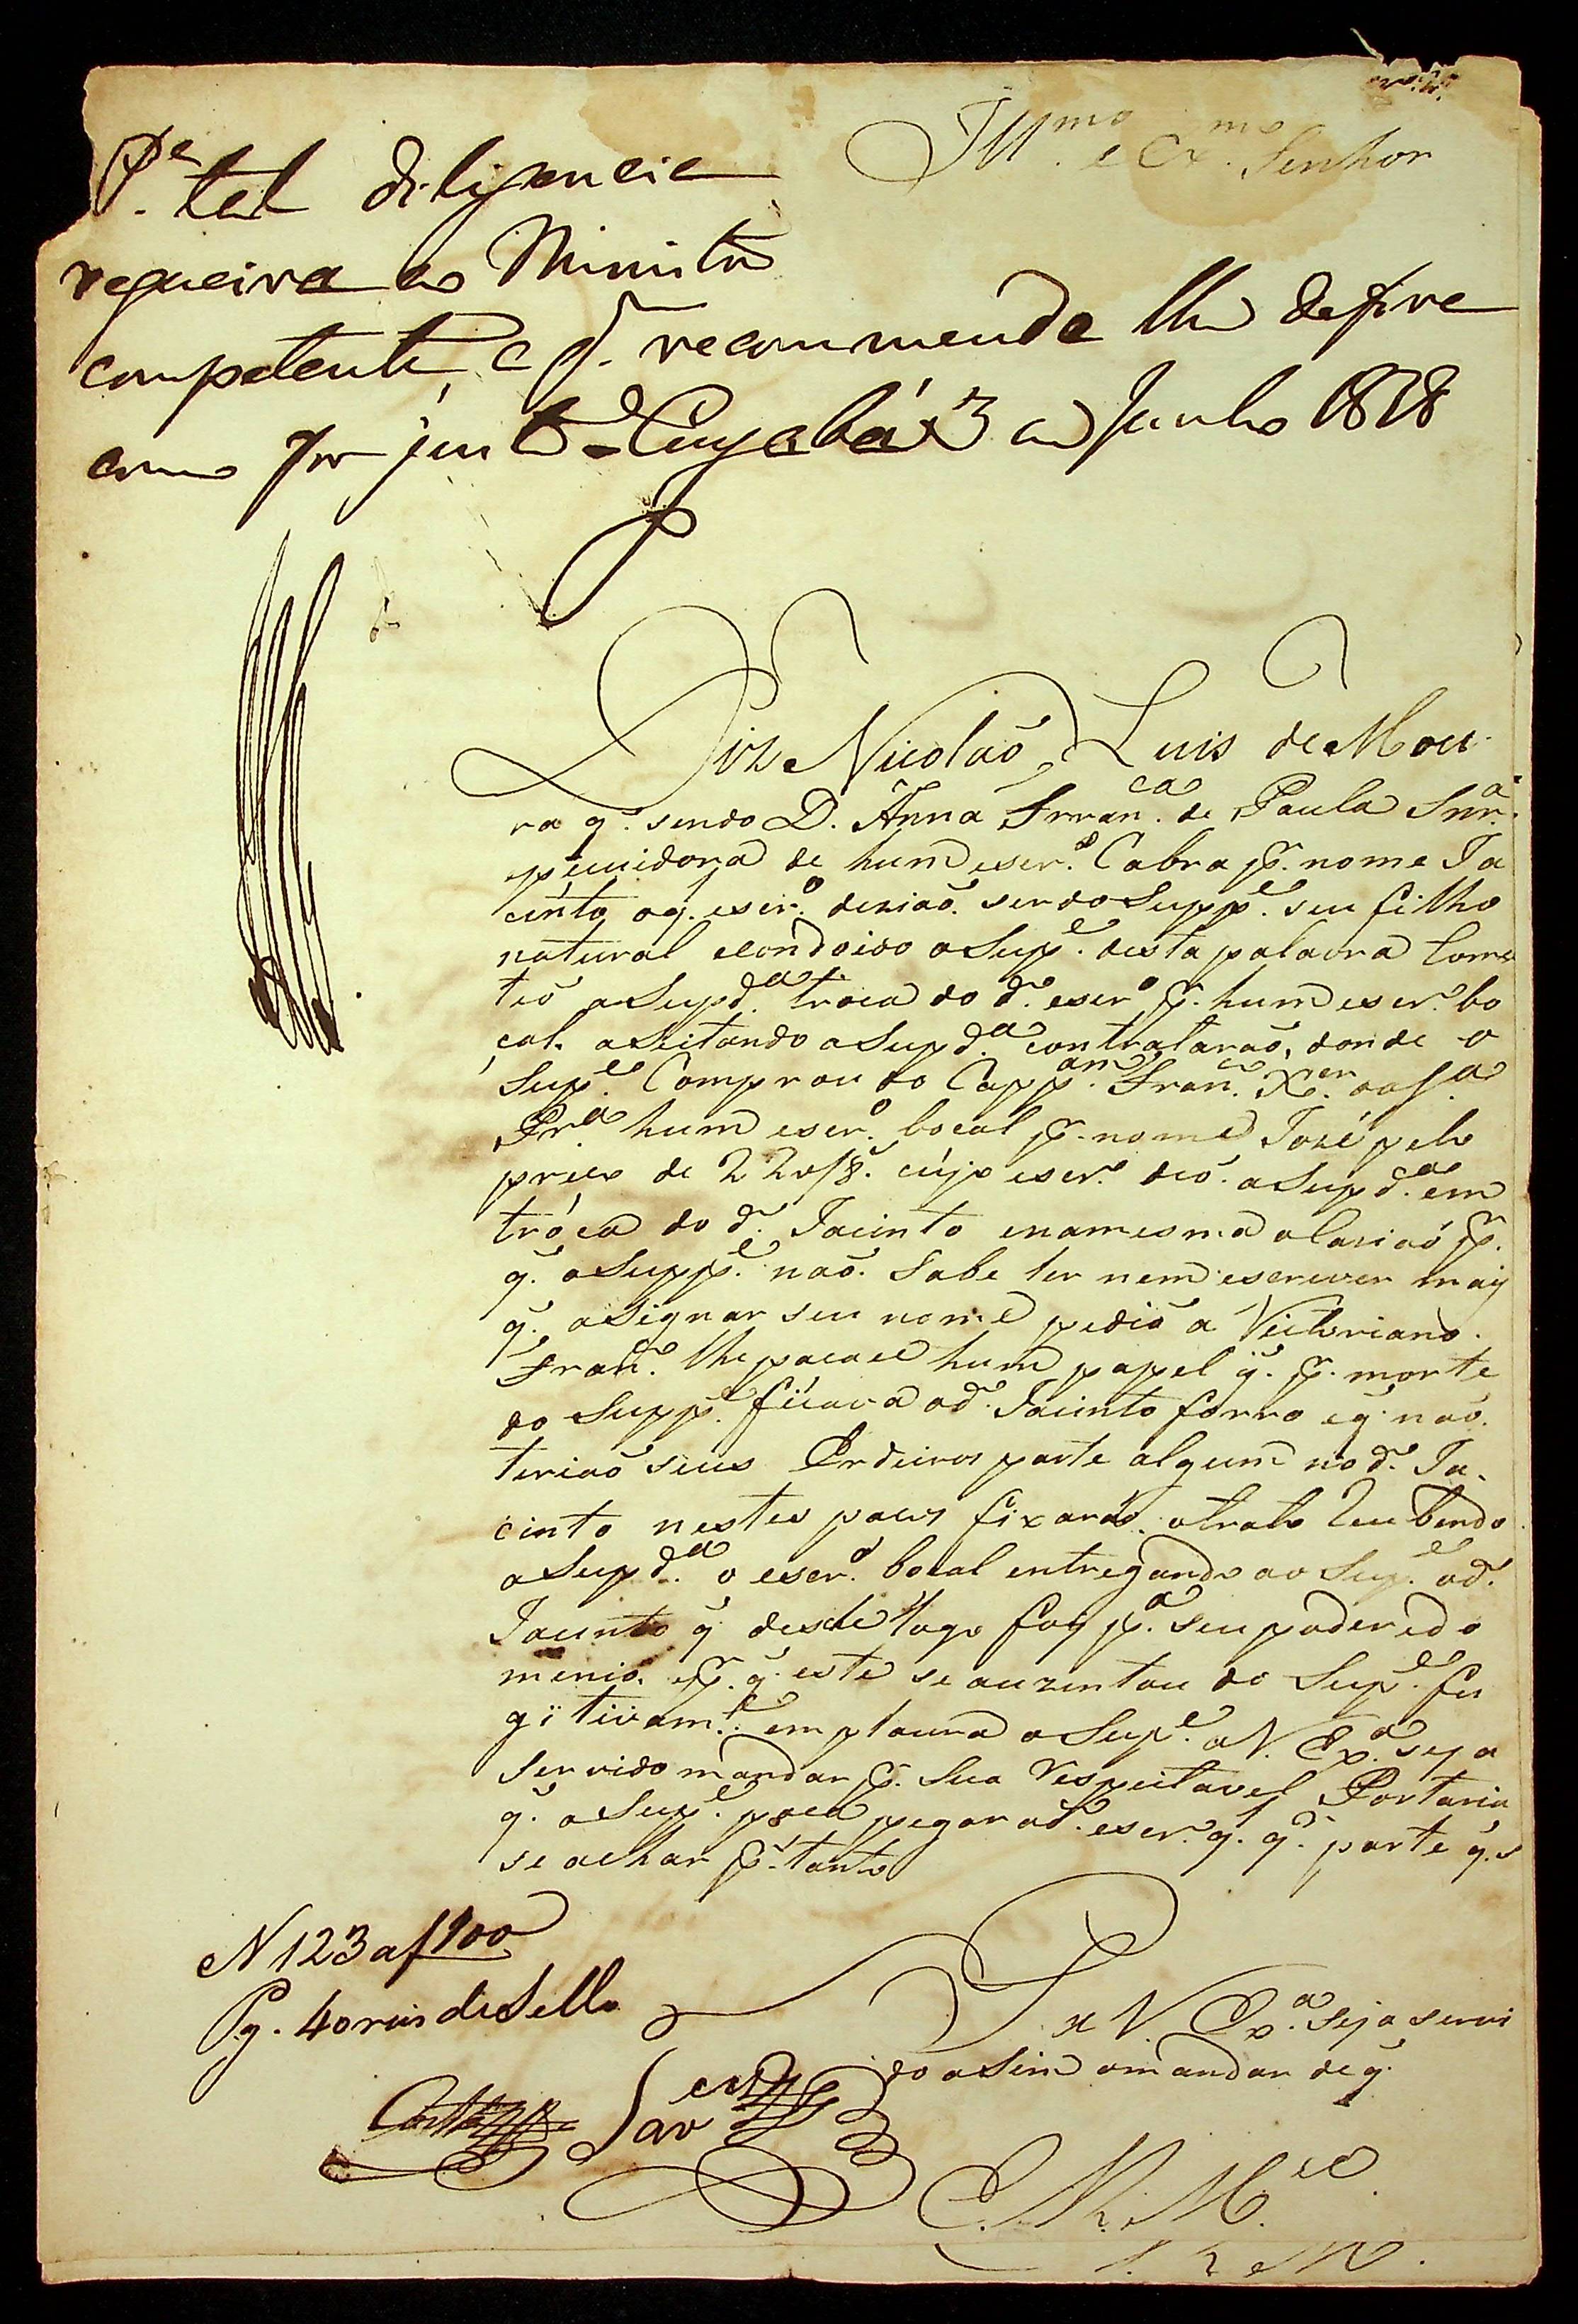 Ill.mo e Ex.mo Senhor
P.a tal diligencia
requeira ao Ministro
competente, e q. recommendo lhe defira
como for justo Cuyabá 3 de Junho 1828
Diz Nicoláo Luis de Mou
ra q. sendo D. Anna Fran.ca de Paula Snr.a
pecuidora de hum escr.o Cabra p.r nome Ja
cinto oq. escr.o deziaõ ser do Supp.e seu filho
natural e condoido o Sup.e desta palavra Come
teó a Supd.a troca do d.o escr.o p.r hum escr.o bo
çal. aSeitando a Supd.a contrataraõ, donde o
Sup.e Comprou ao Capp.am Fran.co X.er da S.a
Pr.a hum escr.o bocal p.r nome José pelo
preco de 220/8.s cujo escr.o deó a Supd.a em
tróca do d.o Jacinto e na mesma ocasiaó p.r
q. o Supp.e naõ Sabe ler nem escrever maiz
q. asignar seu nome pedió a Victoriano
Fran.co lhe pacace hum papel q. p.r morte
do Supp.e ficava o d.o Jacinto forro e q. naó
teriaõ seus Erdeiros parte algum no d.o Ja
cinto nestes pacos fixaraõ o trato Recebendo
a Supd.a o escr.o bocal entregando ao Sup.e o d.o
Jacinto q. desde logo foy p.a seu poder e do
menio. e p.r q. este se auzentou do Sup.e fu
gitivam.te emplaura o Sup.e a V. Ex.a seja
servido mandar p.r Sua Respeitavel Portaria
q. o Sup.e poca pegar o d.o escr.o q. q.r parte q. s
se achar p.r tanto
P. a V. Ex.a seja servi
do aSim o mandar de q.
N 123 a f 100
Pg. 40 reis de Sello
E. R. M.ce